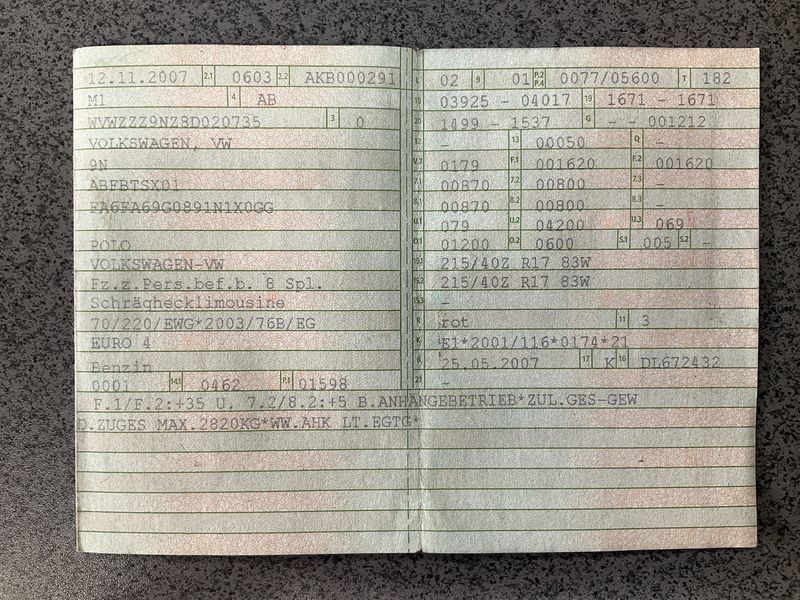 12.11.2007 2.1 0603 2.2 AKB000291
M1 4 AB
WVWZZZ9NZ8D020735 3 0
VOLKSWAGEN, VW
9N
ABFBTSX01
FA6FA69G0891N1X0GG
POLO
VOLKSWAGEN-VW
Fz.z.Pers.bef.b. 8 Spl.
Schräghecklimousine
70/220/EWG*2003/76B/EG
EURO 4
Benzin
0001 14.1 0462 P.1 01598
L 02 9 01 P.2 P.4 0077/05600 T 182
18 03925 - 04017 19 1671 - 1671
20 1499 - 1537 G - - 001212
12 - 13 00050 Q -
V.7 0179 F.1 001620 F.2 001620
7.1 00870 7.2 00800 7.3 -
8.1 00870 8.2 00800 8.3 -
U.1 079 U.2 04200 U.3 069
O.1 01200 O.2 0600 S.1 005 S.2 -
15.1 215/40Z R17 83W
15.2 215/40Z R17 83W
15.3 -
R rot 11 3
K E1*2001/116*0174*21
6 25.05.2007 17 K 16 DL672432
21 -
F.1/F.2:+35 U. 7.2/8.2:+5 B.ANHÄNGEBETRIEB*ZUL.GES-GEW
D.ZUGES MAX.2820KG*WW.AHK LT.EGTG*
-